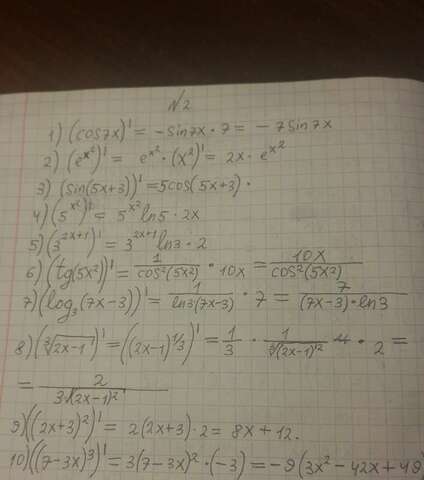 №2
1) (cos7x)' = -sin7x · 7 = -7sin7x
2) (e^x²)' = e^x² · (x²)' = 2x · e^x²
3) (sin(5x+3))' = 5cos(5x+3) ·
4) (5^x²)' = 5^x² ln5 · 2x
5) (3^2x+1)' = 3^2x+1 ln3 · 2
6) (tg(5x²))' = 1/cos²(5x²) · 10x = 10x/cos²(5x²)
7) (log₃(7x-3))' = 1/ln3(7x-3) · 7 = 7/(7x-3)·ln3
8) (∛(2x-1))' = ((2x-1)^1/3)' = 1/3 · 1/∛(2x-1)² · 2 =
= 2/3∛(2x-1)²
9) ((2x+3)²)' = 2(2x+3)·2 = 8x+12.
10) ((7-3x)³)' = 3(7-3x)² · (-3) = -9(3x² - 42x + 49)